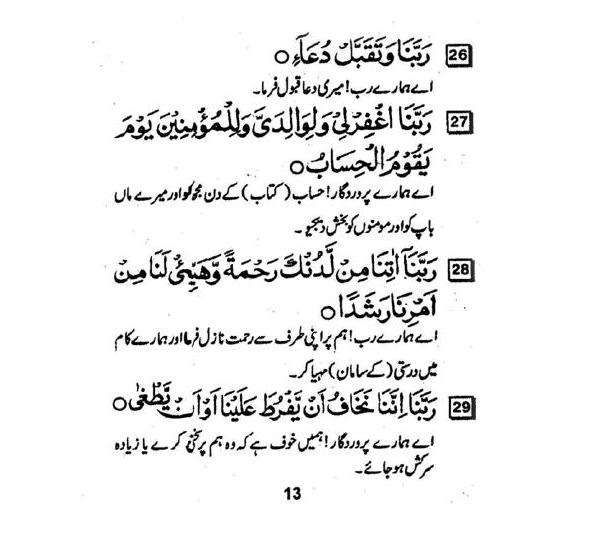 26 رَبَّنَا وَتَقَبَّلْ دُعَآءِ ○
اے ہمارے رب! میری دعا قبول فرما۔
27 رَبَّنَا اغْفِرْلِيْ وَلِوَالِدَيَّ وَلِلْمُؤْمِنِيْنَ يَوْمَ
يَقُوْمُ الْحِسَابُ ○
اے ہمارے پروردگار! حساب (کتاب) کے دن مجھ کو اور میرے ماں
باپ کو اور مومنوں کو بخش دیجیو۔
28 رَبَّنَآ اٰتِنَا مِنْ لَّدُنْكَ رَحْمَةً وَّهَيِّئْ لَنَا مِنْ
اَمْرِنَا رَشَدًا ○
اے ہمارے رب! ہم پر اپنی طرف سے رحمت نازل فرما اور ہمارے کام
میں درستی (کے سامان) مہیا کر۔
29 رَبَّنَا اِنَّنَا نَخَافُ اَنْ يَّفْرُطَ عَلَيْنَا اَوْ اَنْ يَّطْغٰى ○
اے ہمارے پروردگار! ہمیں خوف ہے کہ وہ ہم پر سختی کرے یا زیادہ
سرکش ہو جائے۔
13